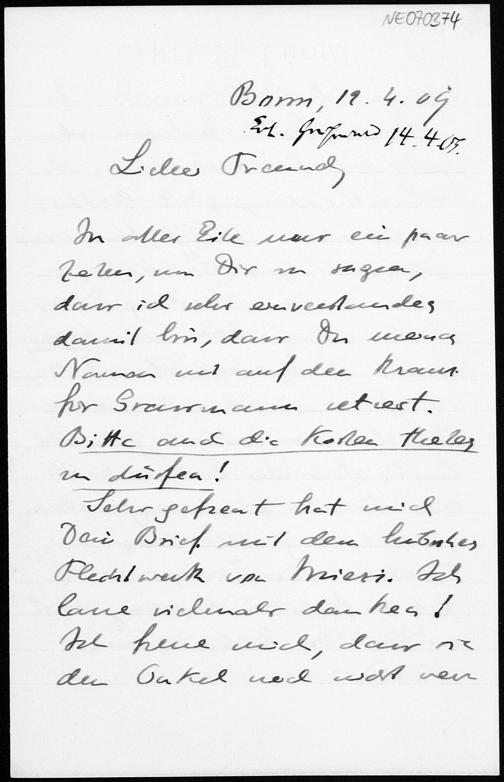 NE070374
Bonn, 12. 4. 09
Erh. 14.4.09.
Lieber Freund,
In aller Eile nur ein paar
Zeilen, um Dir zu sagen,
dass ich sehr einverstanden
damit bin, dass Du meinen
Namen mit auf den Kranz
für Grassmann setzest.
Bitte auch die Kosten theilen
zu dürfen!
Sehr gefreut hat mich
Dein Brief mit dem hübschen
Flechtwerk von Miezi. Ich
lasse vielmals danken!
Ich freue mich, dass sie
den Onkel noch nicht ver